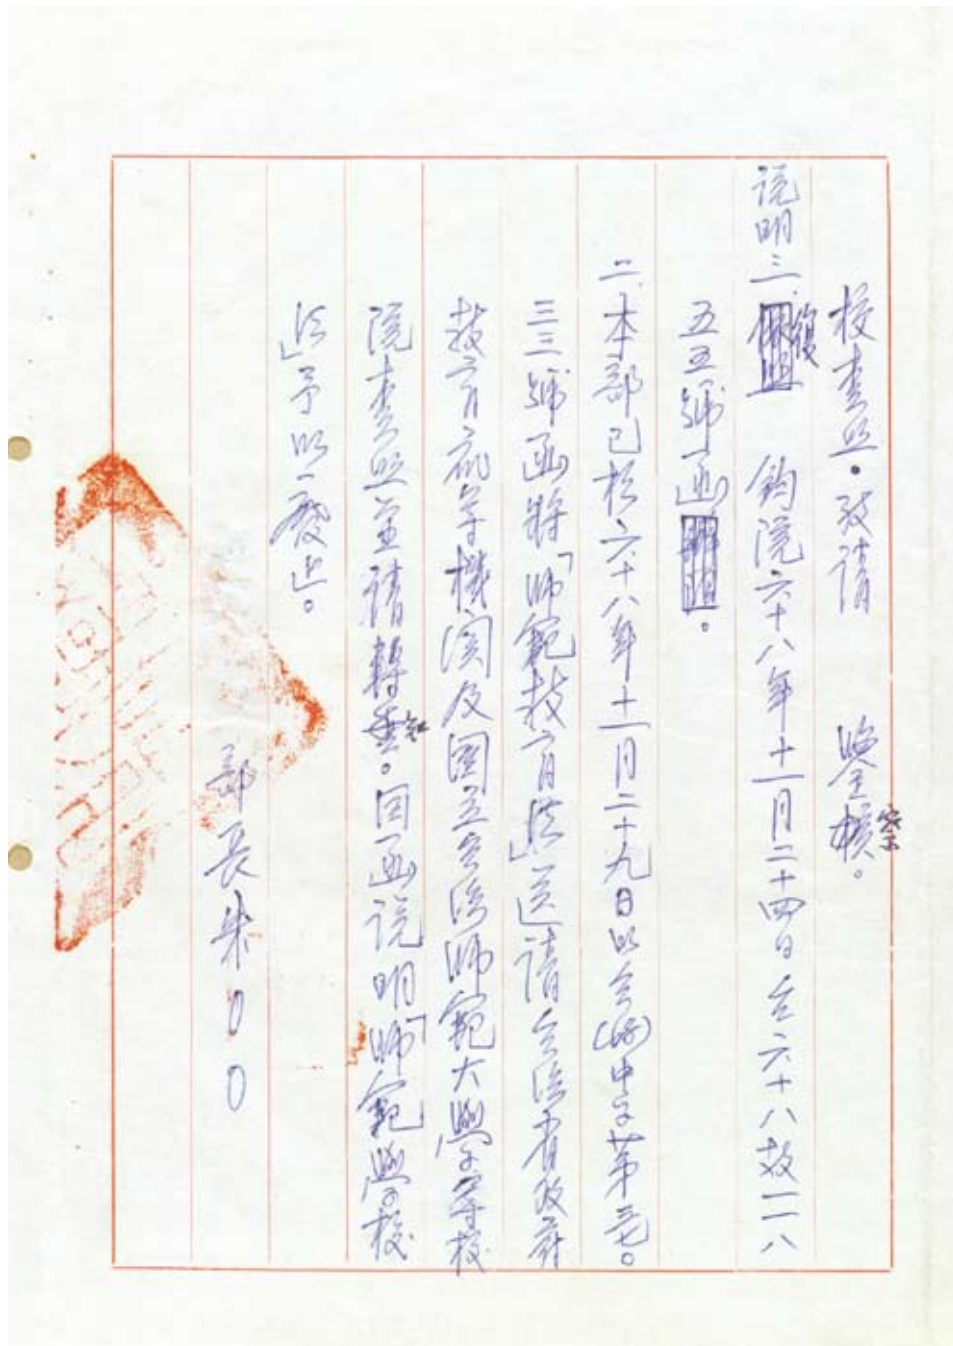 校查照。敬請　鑒察。
說明：一、復　鈞院六十八年十一月二十四日台六十八教一一八
五五號函。
二、本部已於六十八年十一月二十九日以台(68)中字第三七〇
三三號函將「師範教育法」送請台灣省政府
教育廳等機關及國立台灣師範大學等校
院查照並請轉知。同函說明「師範學校
法」予以廢止。
部長朱〇〇